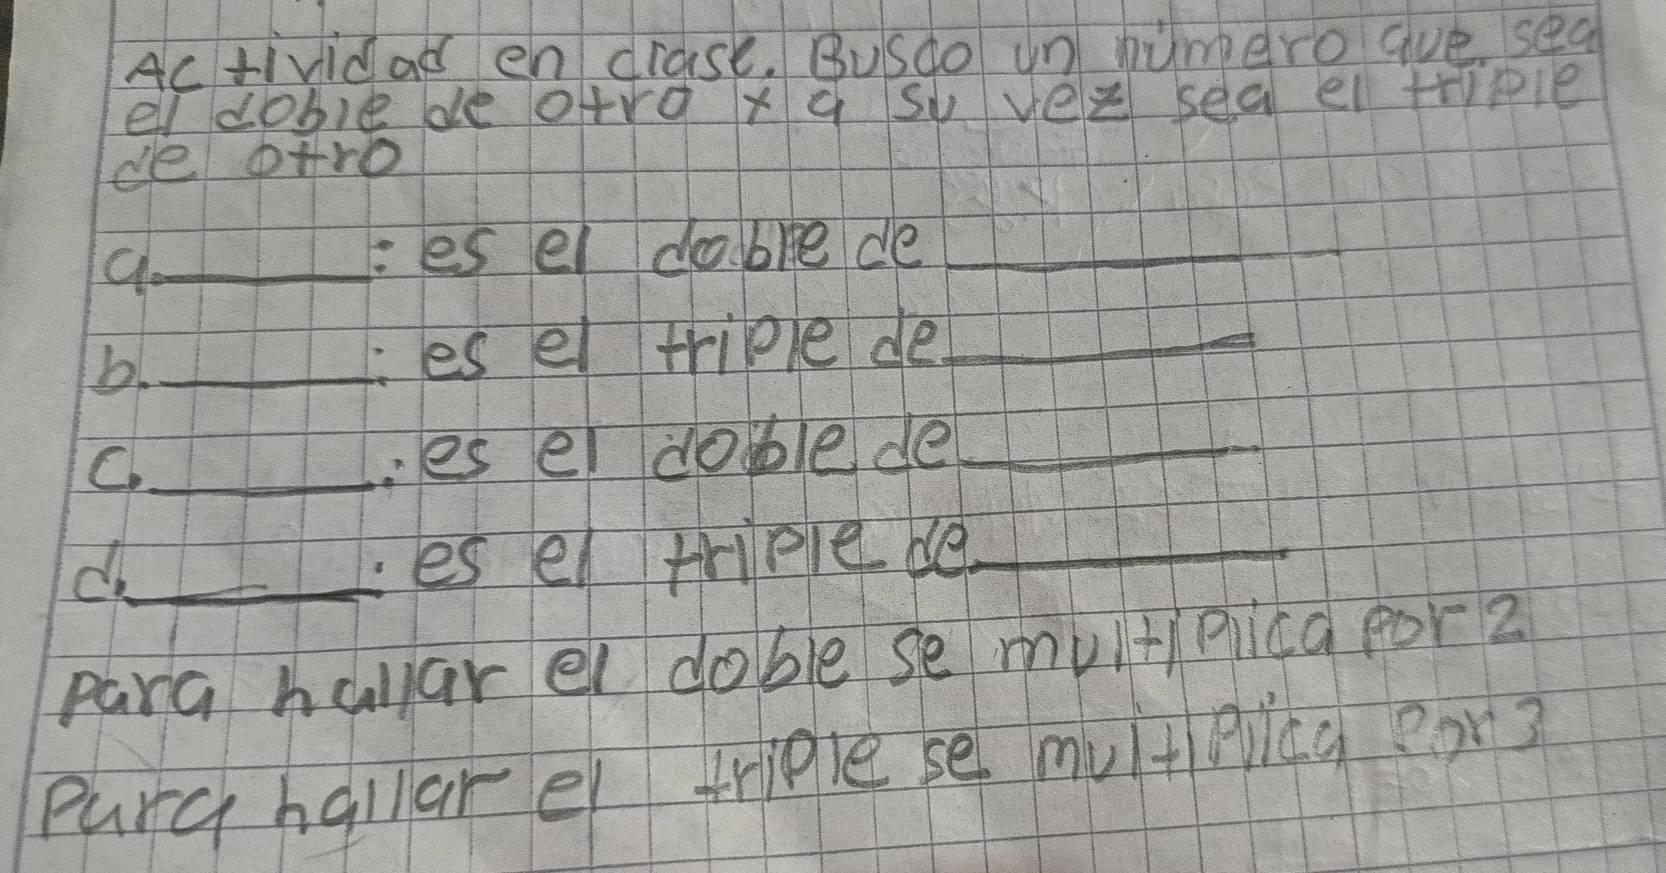 Actividad en clase. Busco un número que sea
el doble de otro y a su vez sea el triple
de otro
a. ______: es el doble de ______
b. ______: es el triple de ______
c. ______: es el doble de ______
d. ______: es el triple de ______
para hallar el doble se multiplica por 2
Para hallar el triple se multiplica por 3